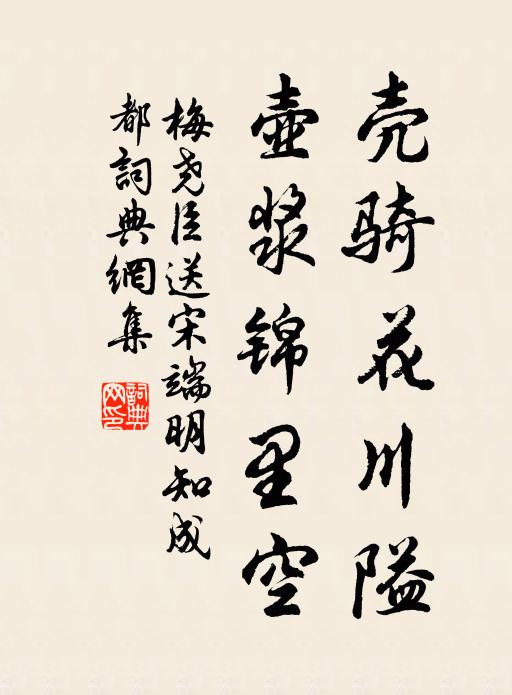 壳骑花川隘
壶浆锦里空
梅尧臣送宋端明知成
都词典網集
詞典網印